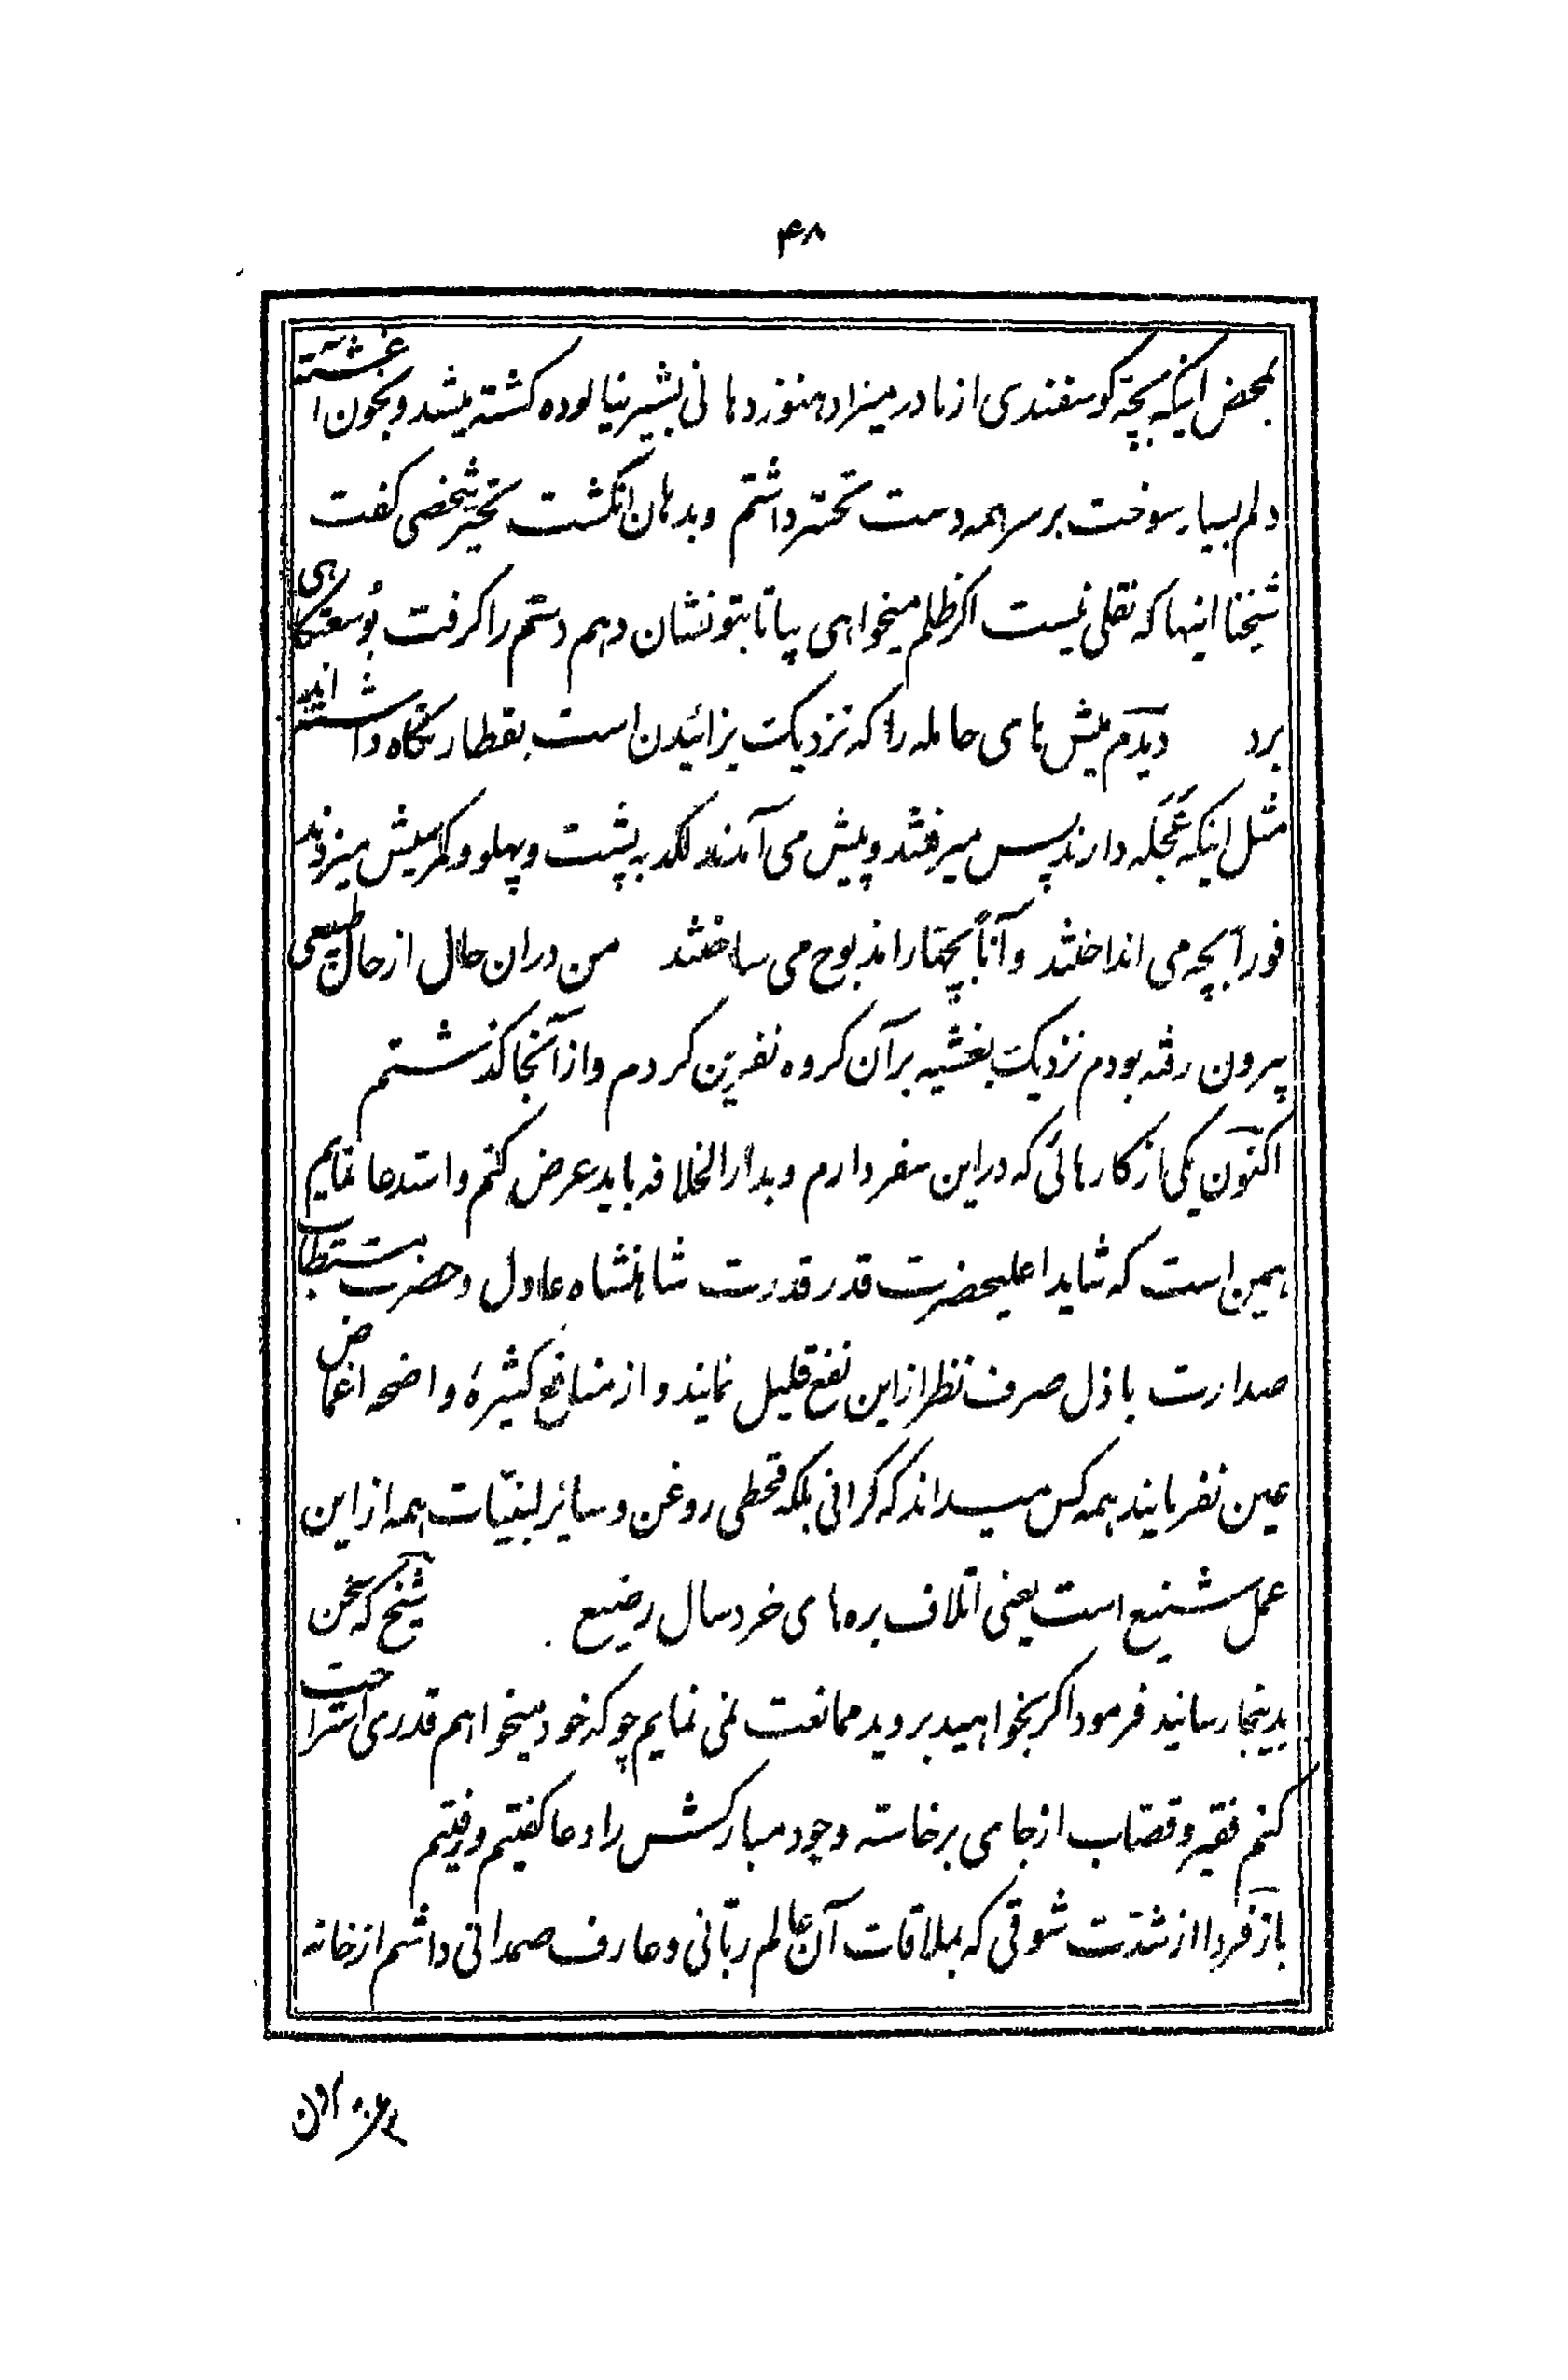 ۴۸
بمحض اینکه بچّه کوسفندی از مادر میزاد هنوز دهانی بشیر نیالوده کشته میشد و بخون اغشته
دلم بسیار سوخت بر سر همه دست تحسّر داشتم و بدهان انکشت تحیّر شخصی کفت
شیخنا اینها که نقلی نیست اکر ظلم میخواهی بیا تا بتو نشان دهم دستم را کرفت بوسعتکاهی
برد دیدم میش های حامله را که نزدیکت بزائیدن است بقطار نکاه داشته اند
مثل اینکه عَجَله دارند پس میرفتند و پیش می آمدند لکد به پشت و پهلو و کمر میش میزدند
فوراً بچه می انداختند و آناً بچّها را مذبوح می ساختند من در ان حال از حال طبیعی
بیرون رفته بودم نزدیکت بغشیه بر آن کروه نفرین کردم و از آنجا کذشتم
اکنون یکی از کارهائی که در این سفر دارم و بدارالخلافه باید عرض کنم و استدعا نمایم
همین است که شاید اعلیحضرت قدر قدرت شاهنشاه عادل و حضرت مستطاب
صدارت باذل صرف نظر از این نفع قلیل نمایند و از منافع کثیرهٔ واضحه اغماض
عین نفرمایند همه کس میداند که کرانی بلکه قحطی روغن و سائر لبنیّات همه از این
عمل شنیع است یعنی اتلاف بره های خردسال رضیع . شیخ که سخن
بدینجا رسانید فرمود اکر بخواهید بروید ممانعت نمی نمایم چو که خود میخواهم قدری استراحت
کنم فقیر و قصّاب از جای برخاسته وجود مبارکش را دعا کفتیم و رفتیم
باز فردا از شدّت شوقی که بملاقات آن عالم ربّانی و عارف صمدانی داشتم از خانه